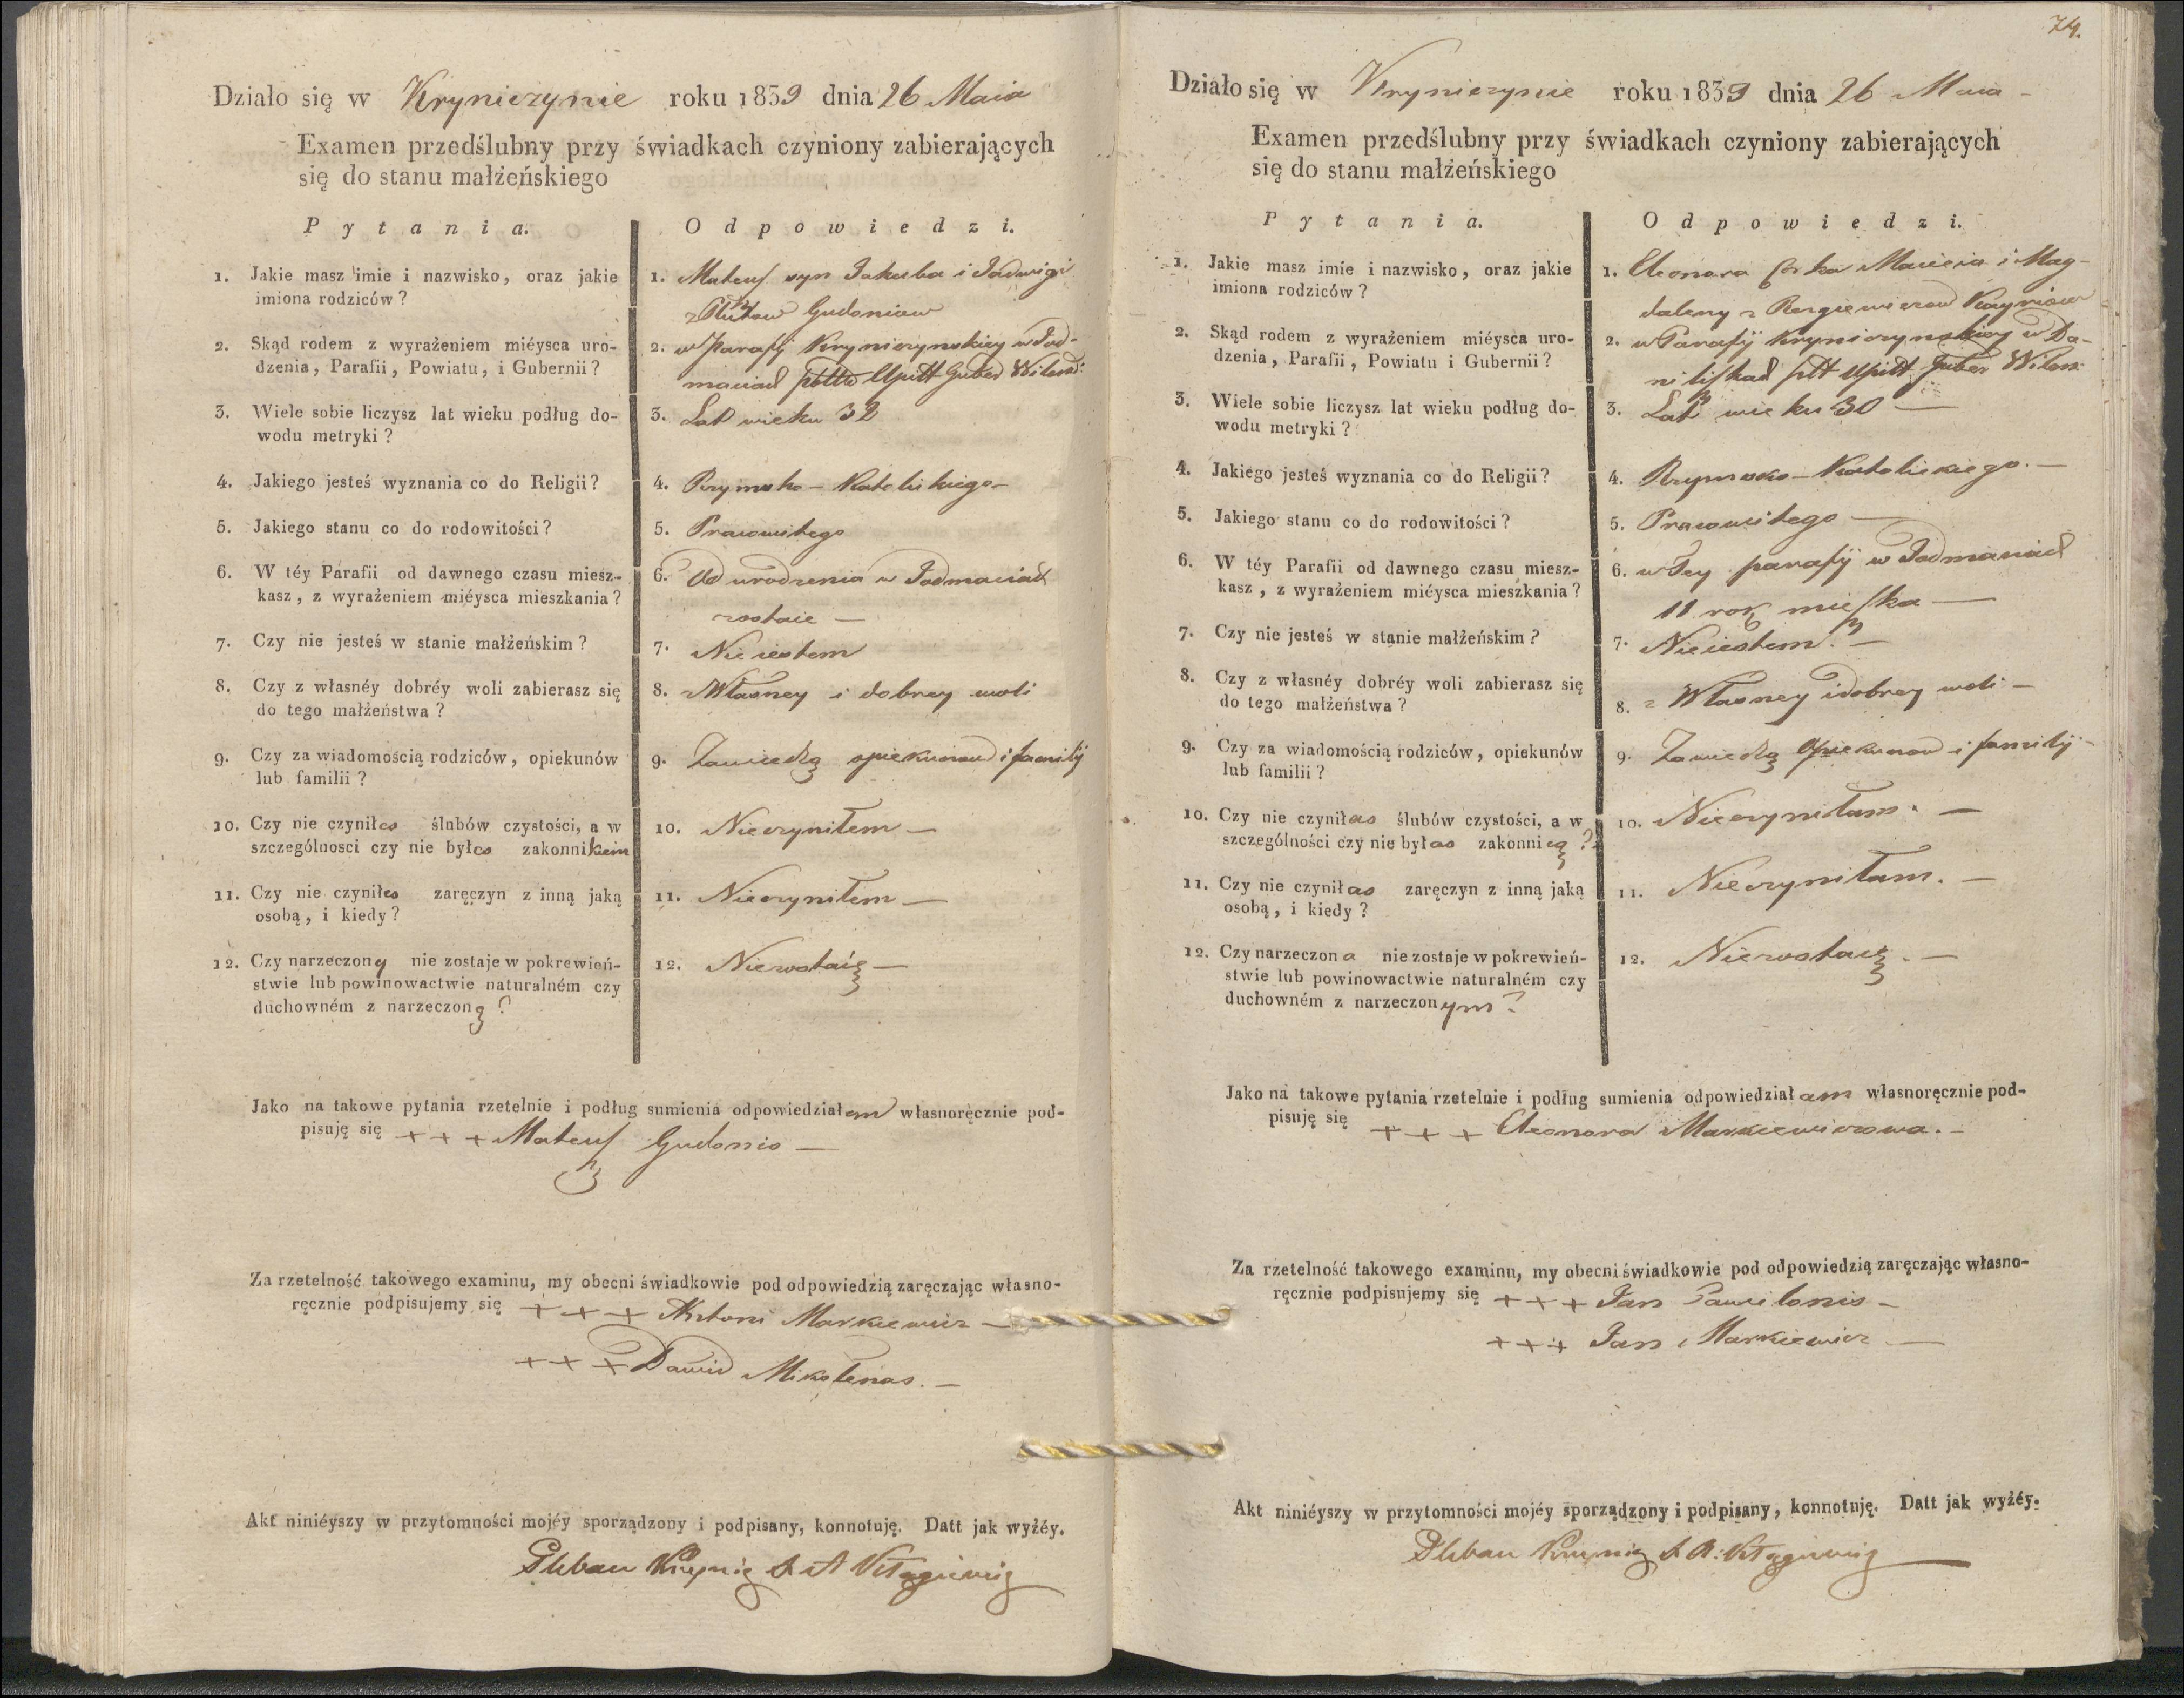 Działo się w Kryniczynie roku 1839 dnia 26 Maia
Examen przedślubny przy świadkach czyniony zabierających
się do stanu małżeńskiego
Pytania.
Odpowiedzi.
1. Jakie masz imie i nazwisko, oraz jakie
imiona rodziców?
1. Mateusz syn Jakuba i Jadwigi
Gudoniow
2. Skąd rodem z wyrażeniem miéysca uro-
dzenia, Parafii, Powiatu, i Gubernii?
2. w Parafij Kryniczynskiey w Jod-
maniach pttu Upitt Guber Wilens:
3. Wiele sobie liczysz lat wieku podług do-
wodu metryki?
3. Lat wieku 32
4. Jakiego jesteś wyznania co do Religii?
4. Rzymsko-Katolickiego-
5. Jakiego stanu co do rodowitości?
5. Prawowitego
6. W téy Parafii od dawnego czasu miesz-
kasz, z wyrażeniem miéysca mieszkania?
6. Od urodzenia w Jodmaniach
zostaie —
7. Czy nie jesteś w stanie małżeńskim?
7. Nieiestem
8. Czy z własnéy dobréy woli zabierasz się
do tego małżeństwa?
8. z Własney i dobrey woli
9. Czy za wiadomością rodziców, opiekunów
lub familii?
9. Zawiedzą opiekunow i familij
10. Czy nie czyniłes ślubów czystości, a w
szczególnosci czy nie byłes zakonnikiem
10. Nieczyniłem —
11. Czy nie czyniłes zaręczyn z inną jaką
osobą, i kiedy?
11. Nieczyniłem —
12. Czy narzeczony nie zostaje w pokrewień-
stwie lub powinowactwie naturalném czy
duchowném z narzeczoną?
12. Niezostaię —
Jako na takowe pytania rzetelnie i podług sumienia odpowiedziałem własnoręcznie pod-
pisuję się +++ Mateusz Gudonis —
Za rzetelność takowego examinu, my obecni świadkowie pod odpowiedzią zaręczając własno-
ręcznie podpisujemy się +++ Antoni Markiewicz —
+++ Dawid Mikolenas. —
Akt niniéyszy w przytomności mojéy sporządzony i podpisany, konnotuję. Datt jak wyżéy.
Pleban Krynicz
74.
Działo się w Kryniczynie roku 1839 dnia 26 Maia -
Examen przedślubny przy świadkach czyniony zabierających
się do stanu małżeńskiego
Pytania.
Odpowiedzi.
1. Jakie masz imie i nazwisko, oraz jakie
imiona rodziców?
1. Eleonora corka Macieia i Mag-
daleny z
2. Skąd rodem z wyrażeniem miéysca uro-
dzenia, Parafii, Powiatu i Gubernii?
2. w Parafij Kryniczynskiey w Da-
niliszkach ptt Upitt Guber Wilens:
3. Wiele sobie liczysz lat wieku podług do-
wodu metryki?
3. Lat wieku 30 —
4. Jakiego jesteś wyznania co do Religii?
4. Rzymsko-Katolickiego. —
5. Jakiego stanu co do rodowitości?
5. Prawowitego —
6. W téy Parafii od dawnego czasu miesz-
kasz, z wyrażeniem miéysca mieszkania?
6. w Tey parafij w Jodmaniach
11 rok mieszka —
7. Czy nie jesteś w stanie małżeńskim?
7. Nieiestem. —
8. Czy z własnéy dobréy woli zabierasz się
do tego małżeństwa?
8. z Własney i dobrey woli —
9. Czy za wiadomością rodziców, opiekunów
lub familii?
9. Zawiedzą Opiekunow i familij -
10. Czy nie czyniłas ślubów czystości, a w
szczególności czy nie byłas zakonnicą?
10. Nieczyniłam. —
11. Czy nie czyniłas zaręczyn z inną jaką
osobą, i kiedy?
11. Nieczyniłam. —
12. Czy narzeczona nie zostaje w pokrewień-
stwie lub powinowactwie naturalném czy
duchowném z narzeczonym?
12. Niezostaię. —
Jako na takowe pytania rzetelnie i podług sumienia odpowiedziałam własnoręcznie pod-
pisuję się +++ Eleonora Markiewiczowa. —
Za rzetelność takowego examinu, my obecni świadkowie pod odpowiedzią zaręczając własno-
ręcznie podpisujemy się +++ Jan Pawilonis —
+++ Jan Markiewicz —
Akt niniéyszy w przytomności mojéy sporządzony i podpisany, konnotuję. Datt jak wyżéy.
Pleban Krynicz